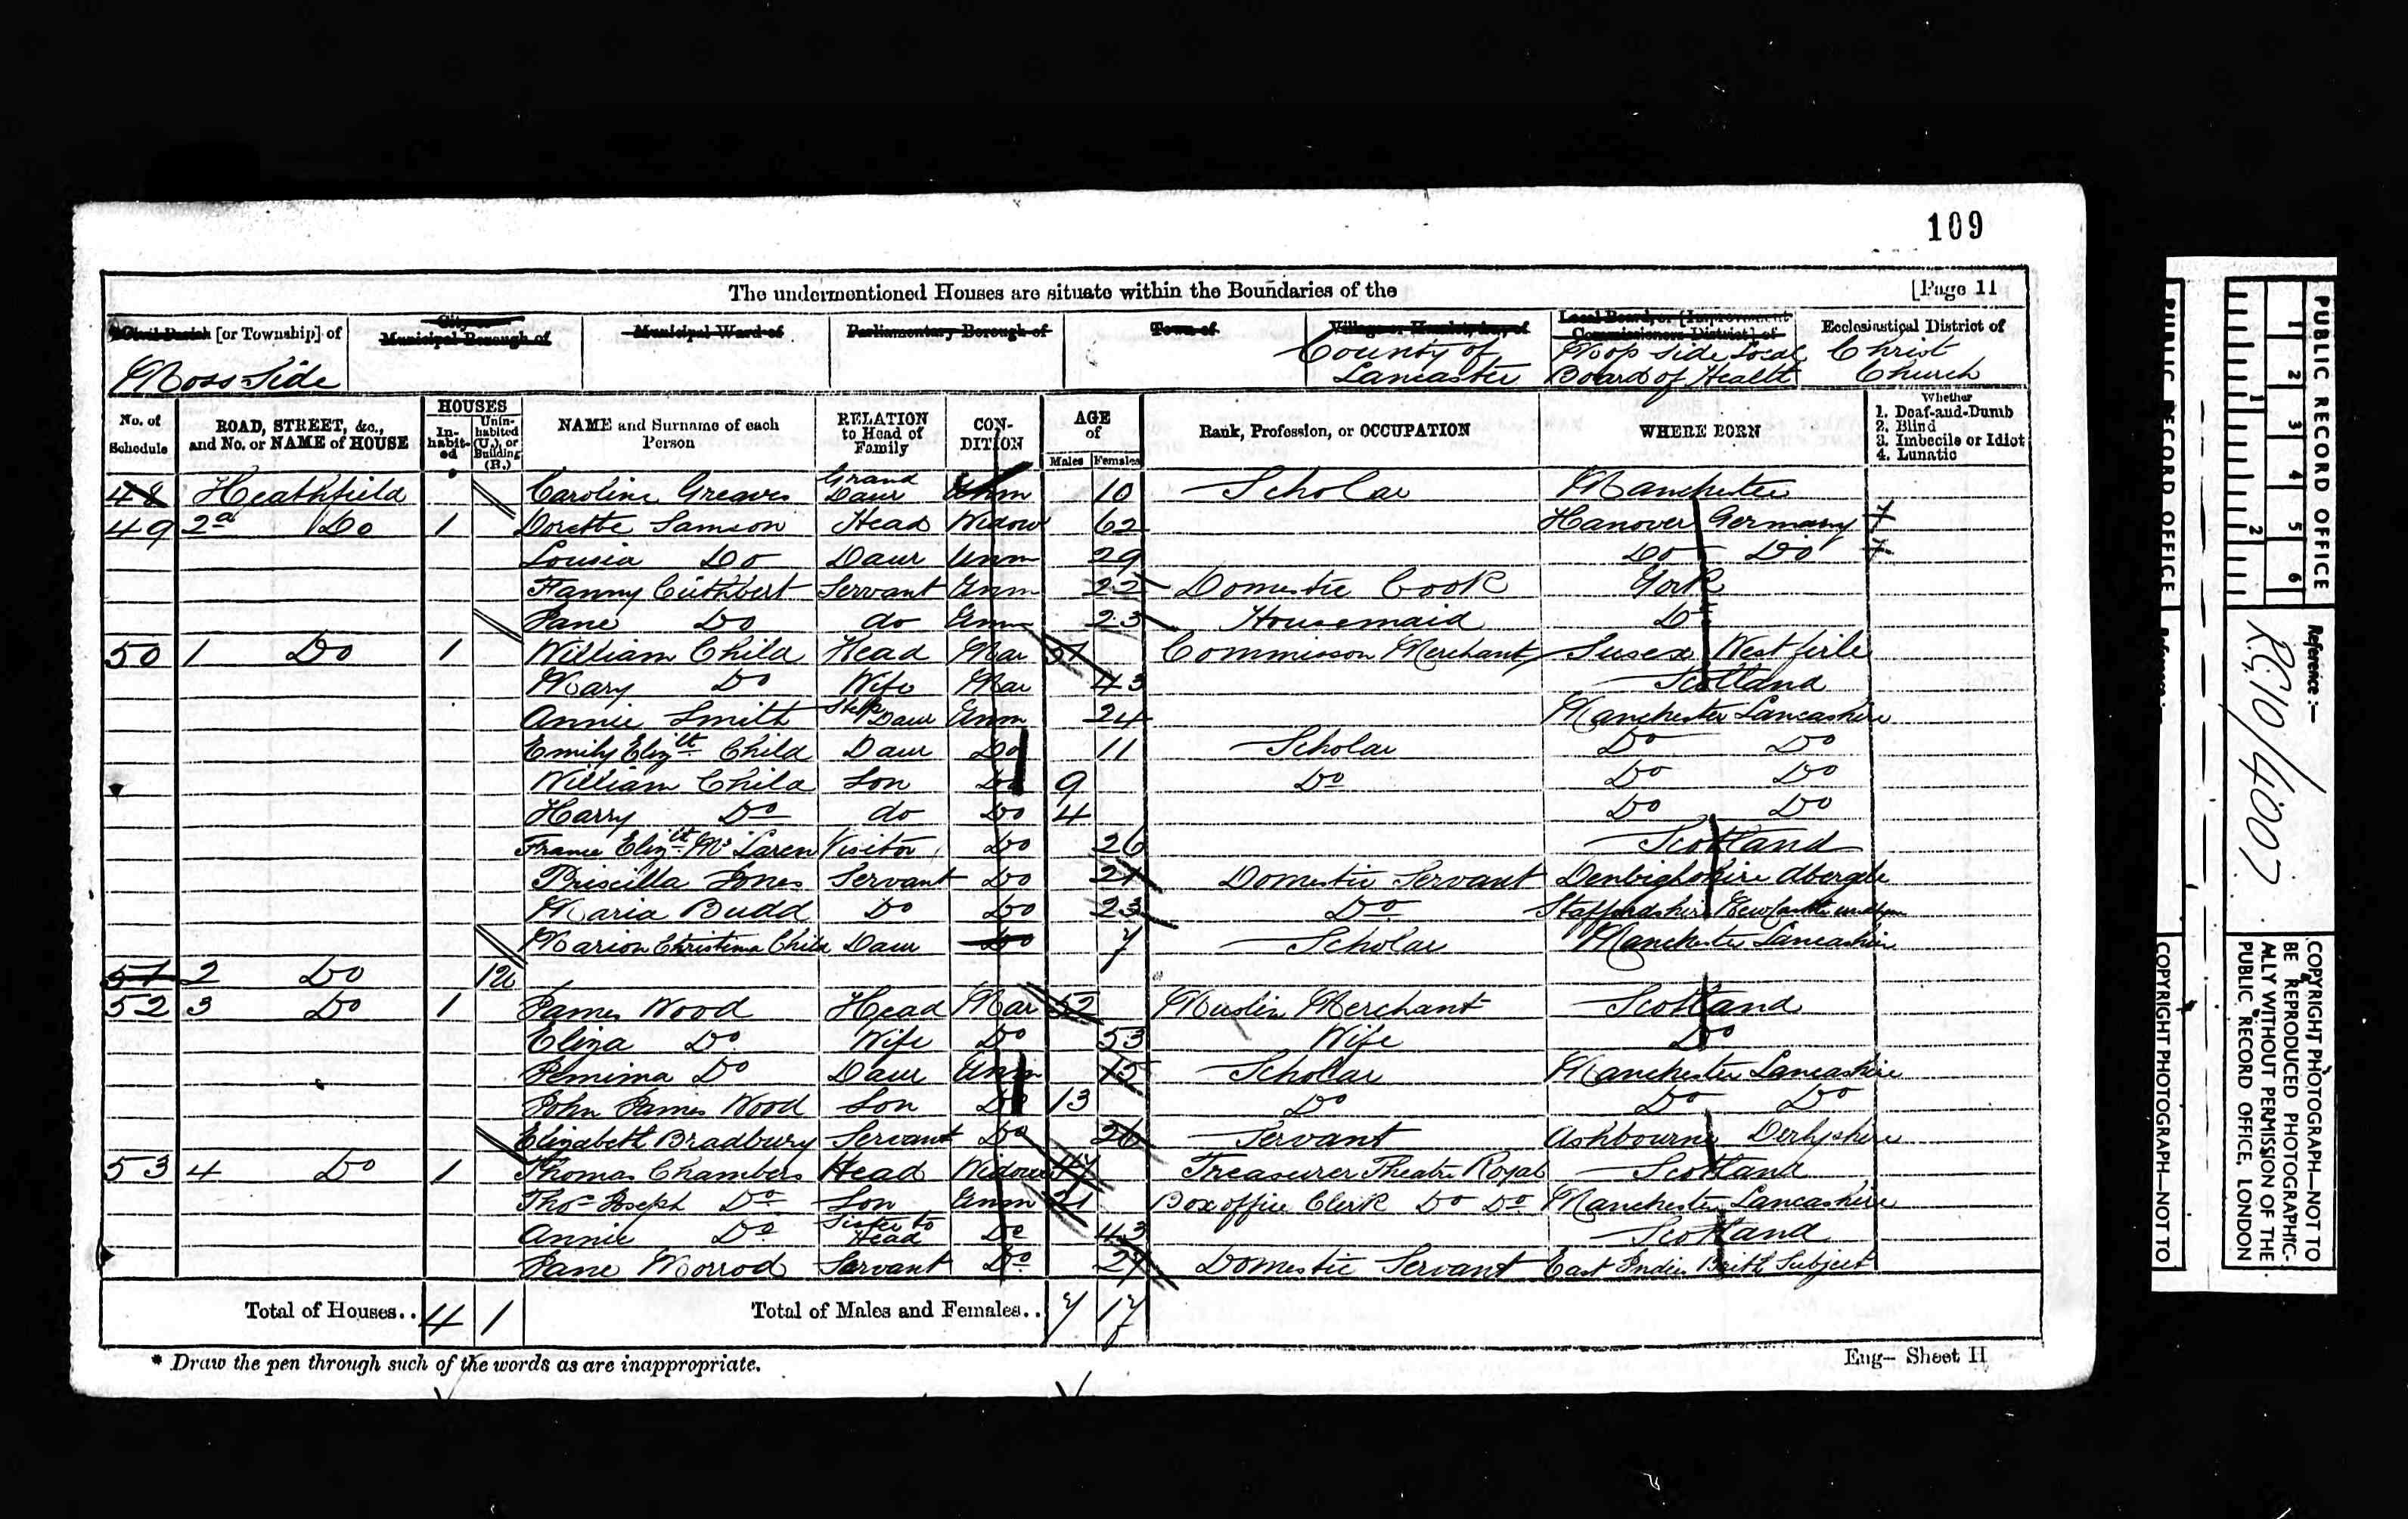 109
The undermentioned Houses are situate within the Boundaries of the [Page 11
Civil Parish [or Township] of City or Municipal Borough of Municipal Ward of Parliamentary Borough of Town of Village or Hamlet, &c., of Local Board, or [Improvement Commissioners District] of Ecclesiastical District of
Moss Side County of Lancaster Moss Side Local Board of Health Christ Church
No. of Schedule ROAD, STREET, &c., and No. or NAME of HOUSE HOUSES Inhabited Uninhabited (U.), or Building (B.) NAME and Surname of each Person RELATION to Head of Family CONDITION AGE of Males Females Rank, Profession, or OCCUPATION WHERE BORN Whether 1. Deaf-and-Dumb 2. Blind 3. Imbecile or Idiot 4. Lunatic
48 Heathfield Caroline Greaves Grand Daur Unm 10 Scholar Manchester
49 2a Do 1 Dorette Samson Head Widow 62 Hanover Germany
Lousia Do Daur Unm 29 Do Do
Fanny Cuthbert Servant Unm 22 Domestic Cook York
Jane Do do Unm 23 Housemaid Do
50 1 Do 1 William Child Head Mar 51 Commisson Merchant Susex West firle
Mary Do Wife Mar 43 Scotland
Annie Smith Step Daur Unm 24 Manchester Lancashire
Emily Elizth Child Daur Do 11 Scholar Do Do
William Child Son Do 9 Do Do Do
Harry Do do Do 4 Do Do
Elizth Mc Laren Visitor Do 26 Scotland
Priscilla Jones Servant Do 21 Domestic Servant Denbighshire
Maria Budd Do Do 23 Do Staffordshire
Marion Christina Child Daur Do 7 Scholar Manchester Lancashire
51 2 Do 1u
52 3 Do 1 James Wood Head Mar 52 Muslin Merchant Scotland
Eliza Do Wife Do 53 Wife Do
Jemima Do Daur Unm 15 Scholar Manchester Lancashire
John James Wood Son Do 13 Do Do Do
Elizabeth Bradbury Servant Do 26 Servant Ashbourne Derbyshire
53 4 Do 1 Thomas Chambers Head Widower Treasurer Theatre Royal Scotland
Thos Joseph Do Son Unm 21 Box office Clerk Do Do Manchester Lancashire
Annie Do Sister to Head Do 43 Scotland
Jane Morrod Servant Do 27 Domestic Servant East Indies Brith Subject
Total of Houses.. 4 1 Total of Males and Females.. 7 17
* Draw the pen through such of the words as are inappropriate.
Eng— Sheet H
PUBLIC RECORD OFFICE
1 2 3 4 5 6
1 2
PUBLIC RECORD OFFICE
Reference :—
RG 10/4007
COPYRIGHT PHOTOGRAPH—NOT TO
BE REPRODUCED PHOTOGRAPHIC-
ALLY WITHOUT PERMISSION OF THE
PUBLIC RECORD OFFICE, LONDON
COPYRIGHT PHOTOGRAPH—NOT TO